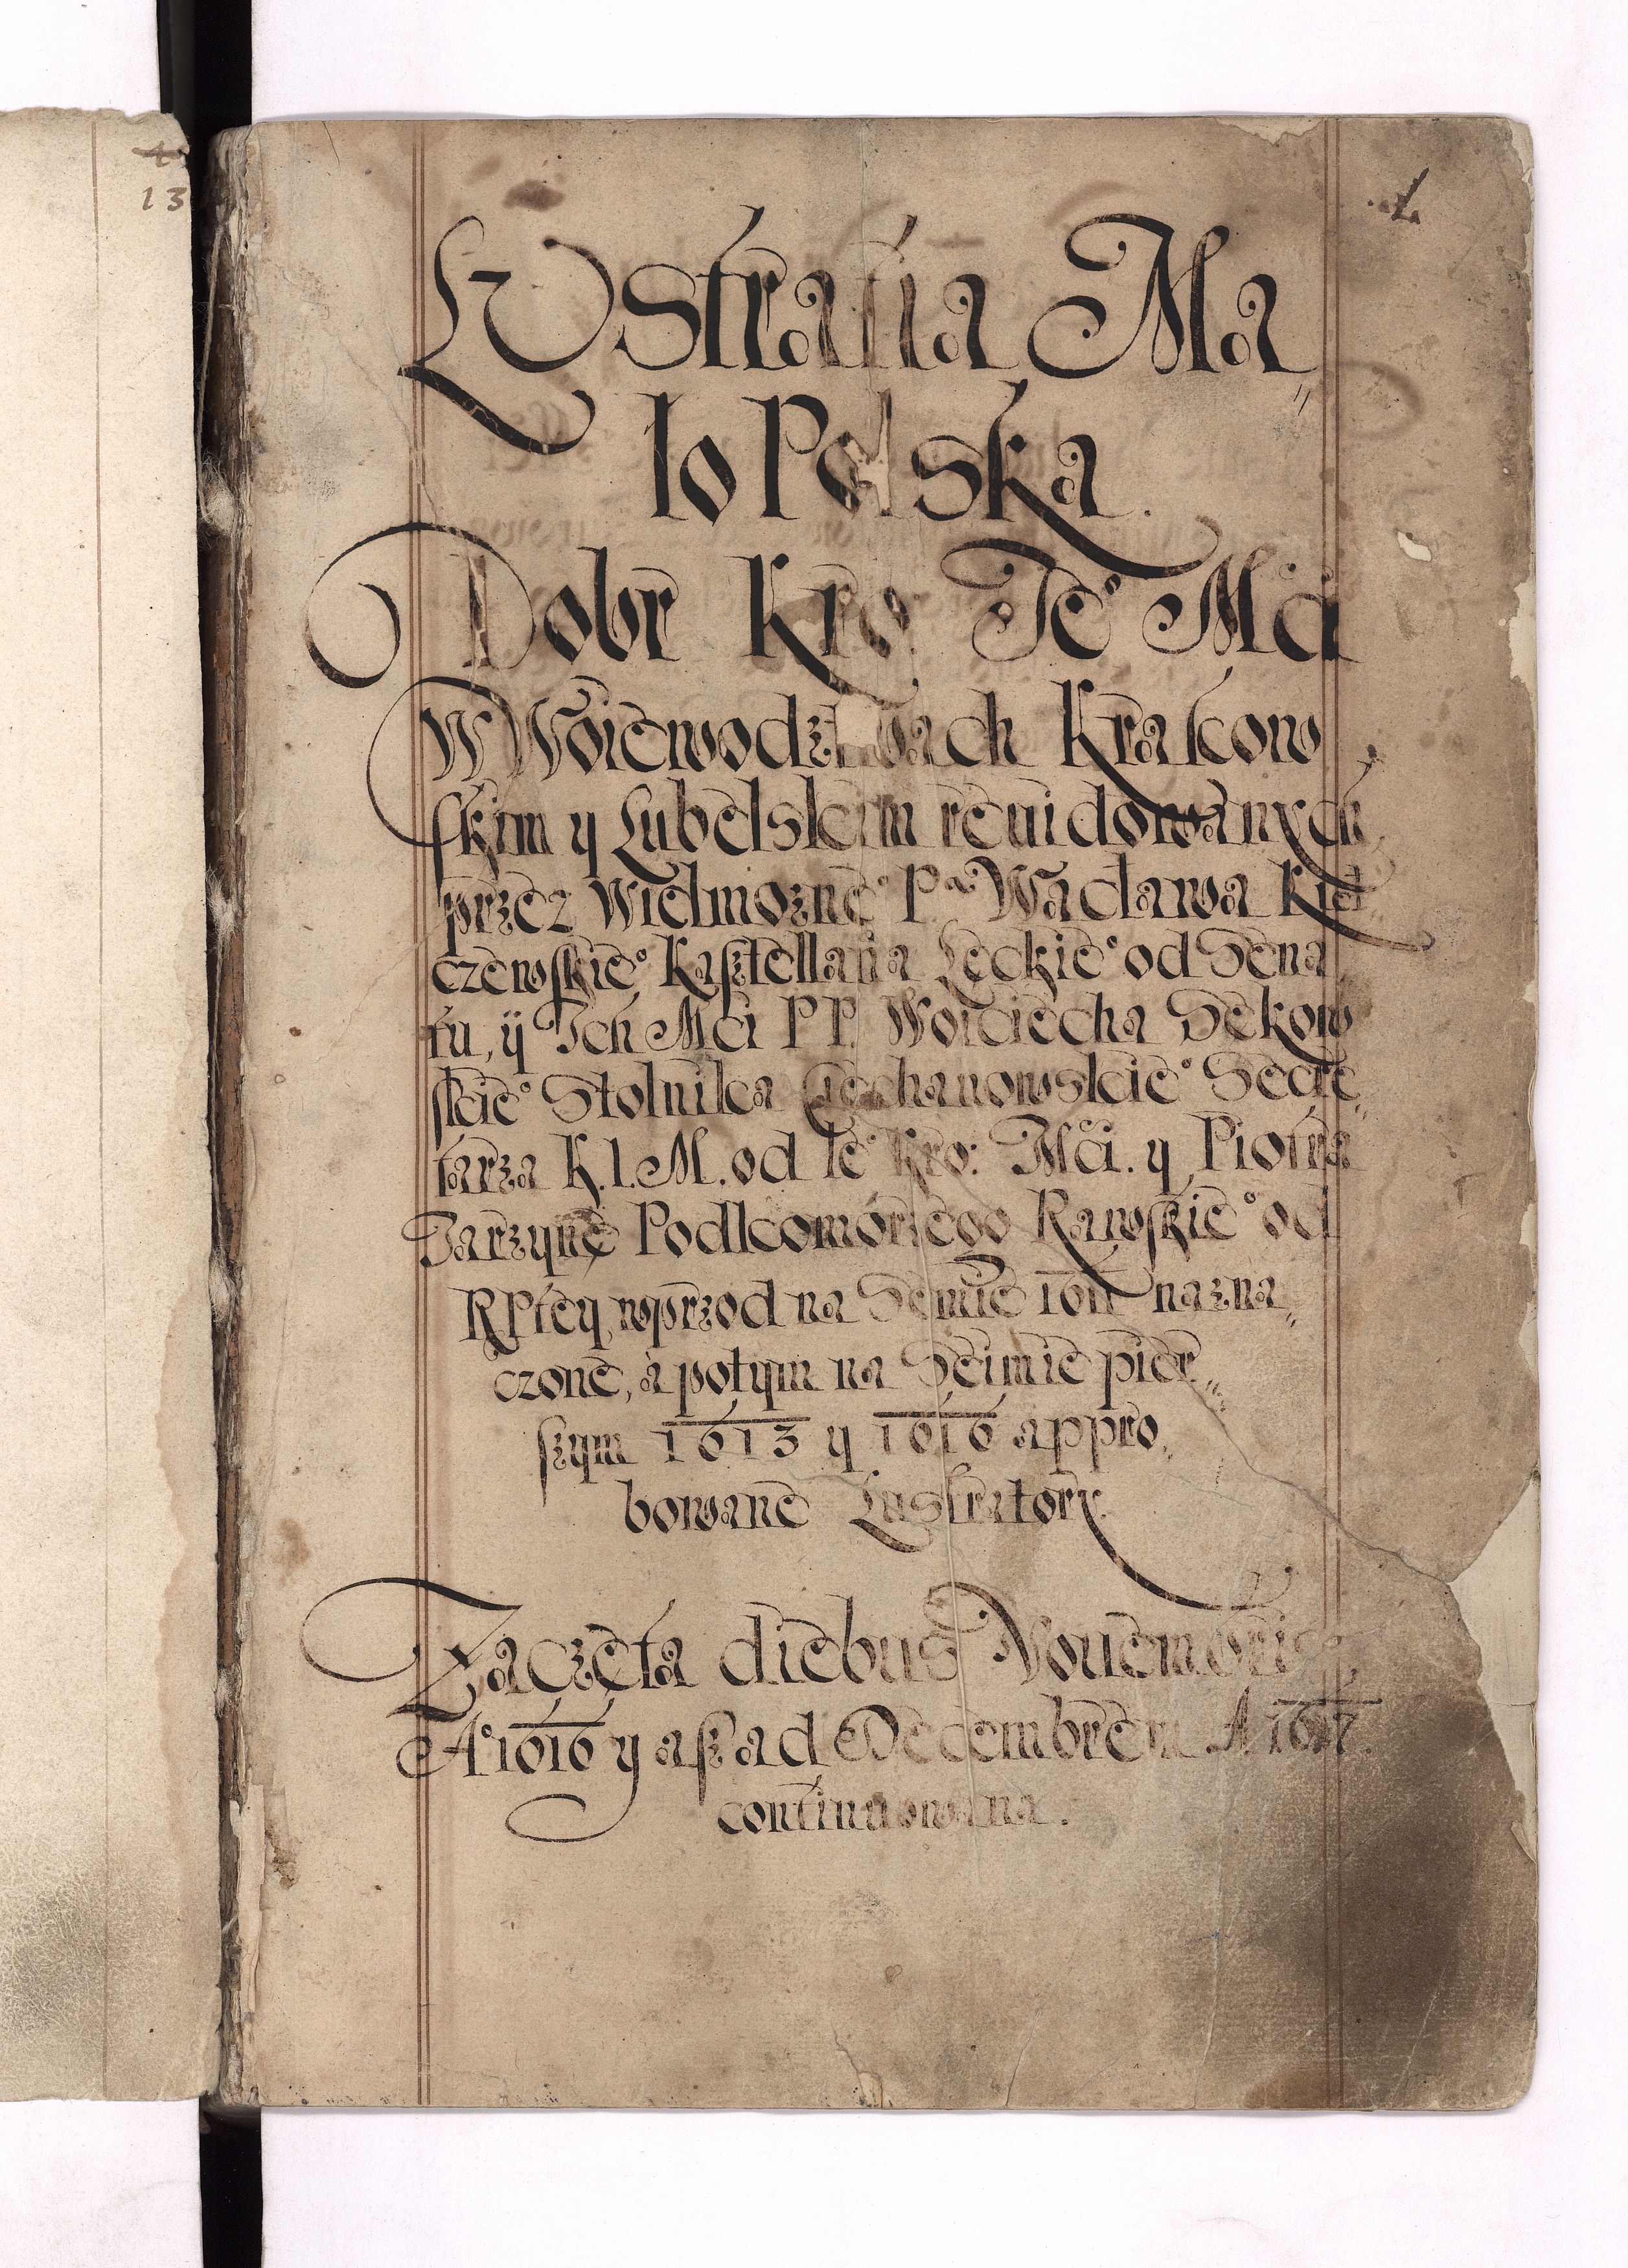 13
1
Lustratia Ma„
ło Polska.
Dobr Kro Je° Mći
W Woiewodztwach Krakow
skim y Lubelskim reuidowanych,
przez Wielmozne° Pa Wacława Kieł
czewskie° Kasztellana Leckie° od Sena
tu, ÿ Ich Mći PP. Woiciecha Sekow
skie° Stolnika Ciechanowskie° Secre„
tarza K. I. M. od Ie° Kro: Mći. y Piotra
Jarzynę Podkomorzego Rawskie° od
RPtey wprzod na Seimie 1611 nazna„
czone, à potym na Seimie pier„
szym 1613 y 1616 appro„
bowane Lustratory.
Zaczęta diebus Nouembris
A° 1616 y asz ad Decembrem A 1617.
continuowana.